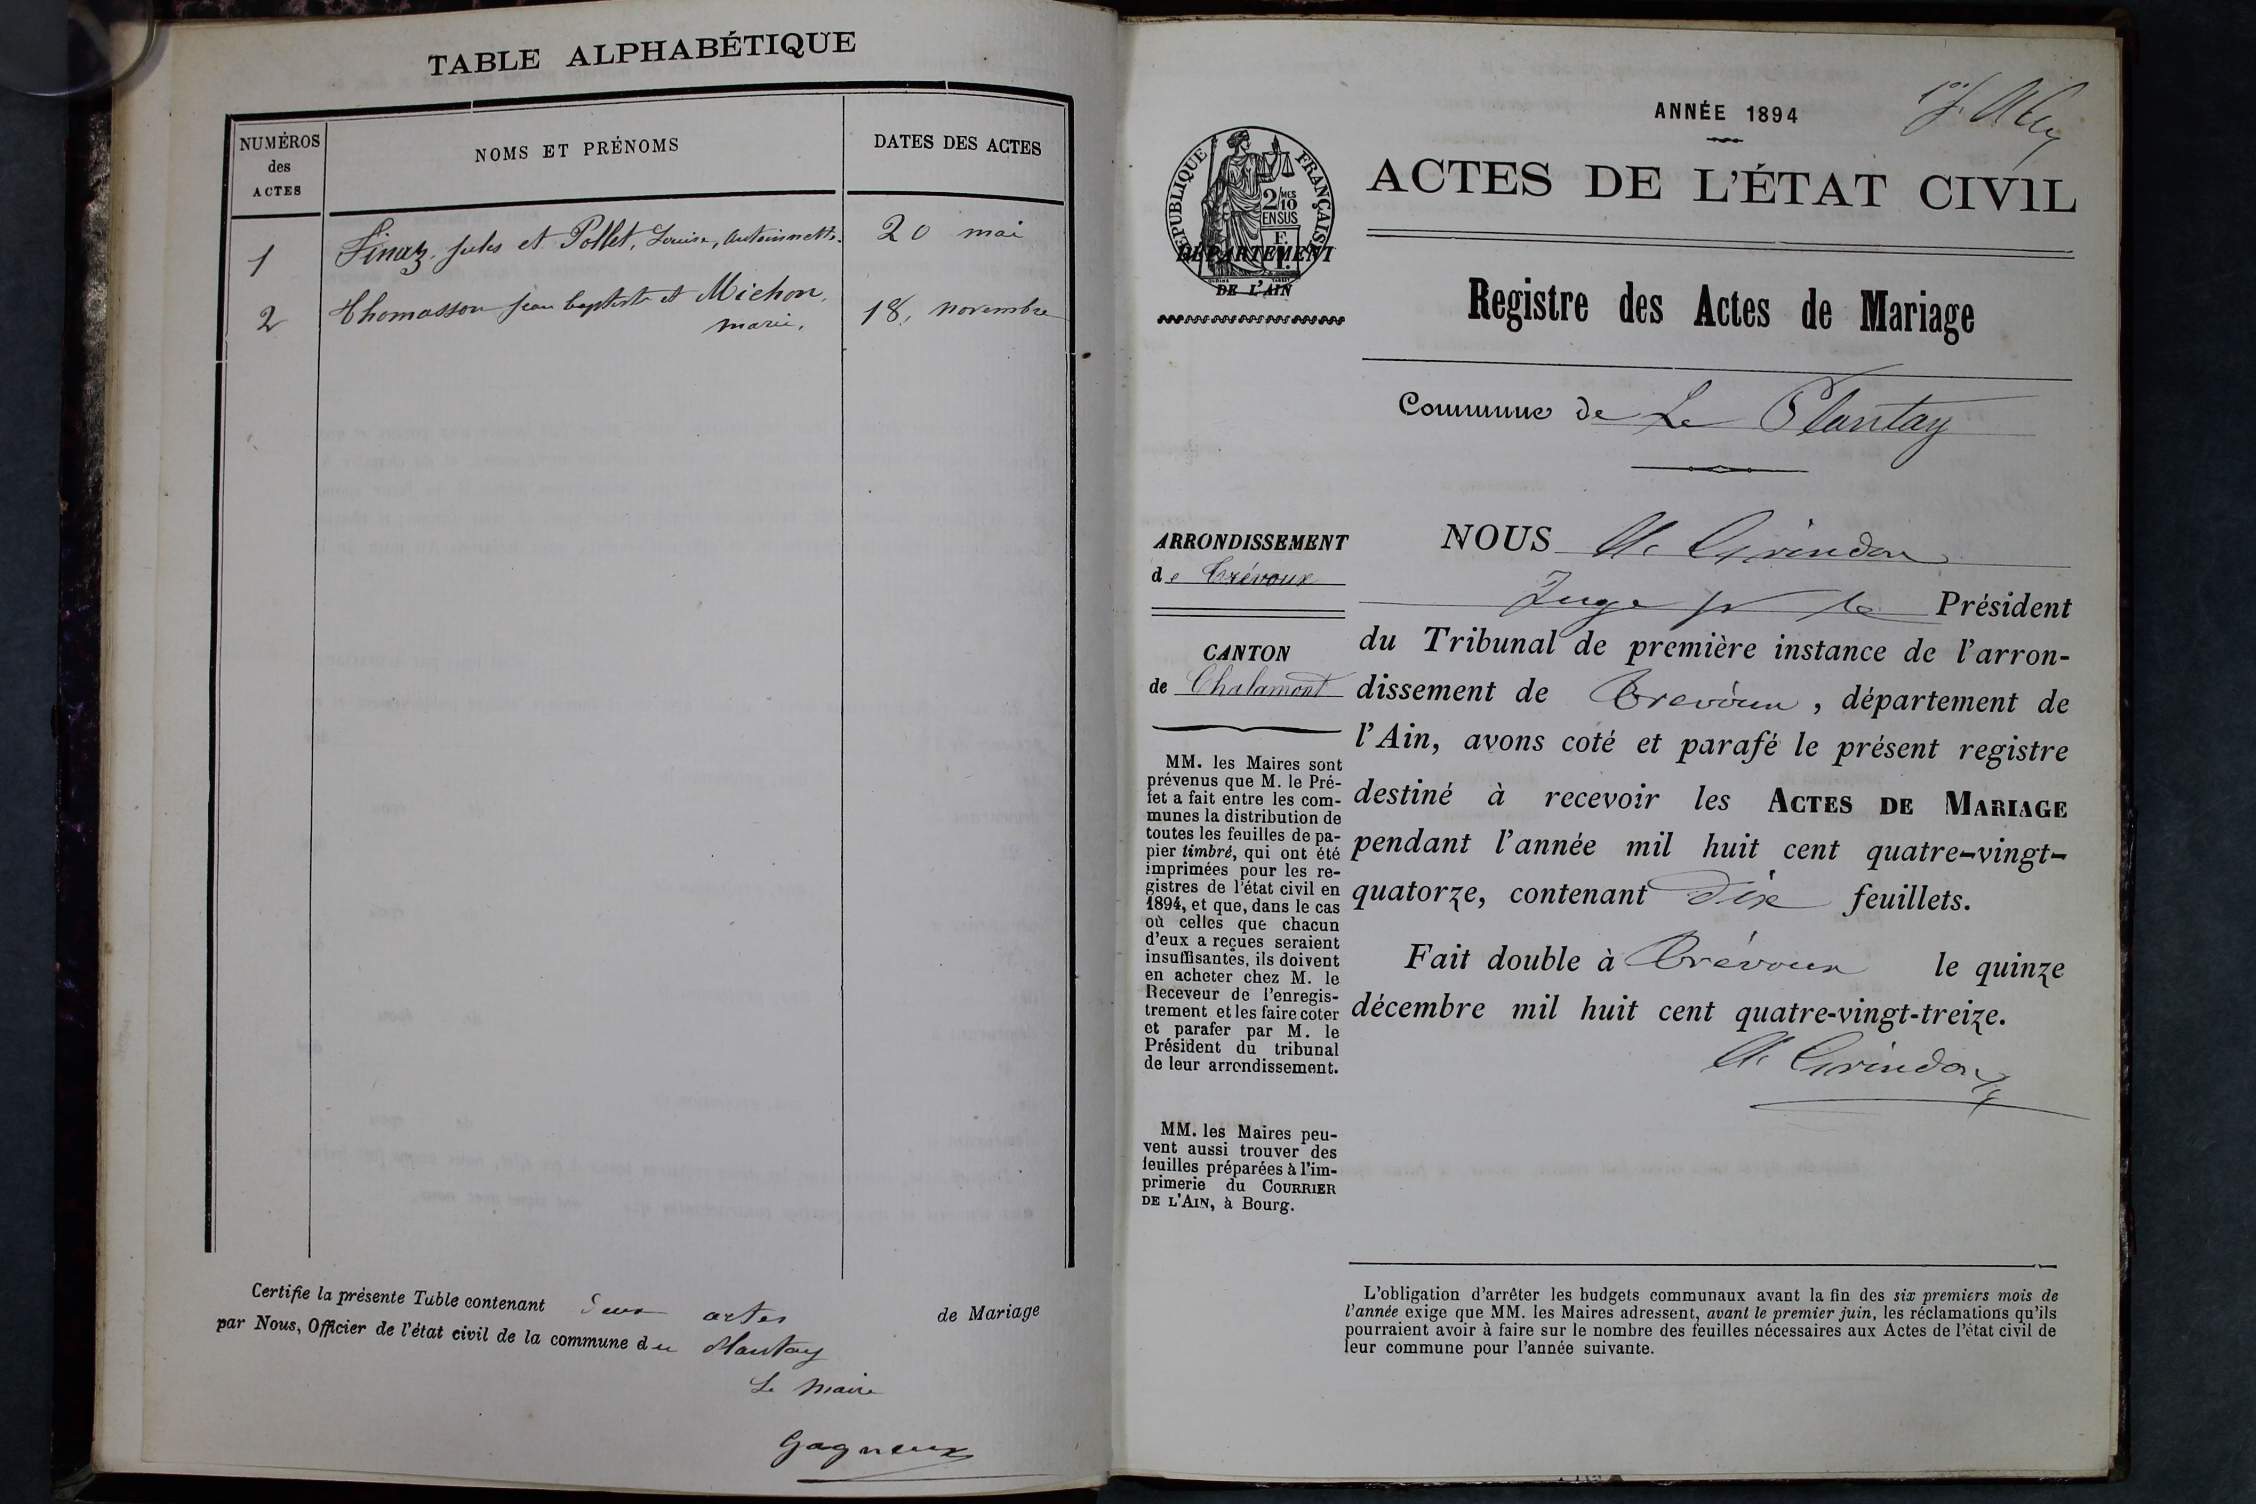 TABLE ALPHABÉTIQUE
NUMÉROS
des
ACTES
NOMS ET PRÉNOMS
DATES DES ACTES
1 Finaz Jules et Pollet, Louise, Antoinette. 20 mai
2 Thomasson Jean baptiste et Michon, 18, novembre
marie,
Certifie la présente Table contenant deux actes de Mariage
par Nous, Officier de l'état civil de la commune du Plantay
Le Maire
Gagneux
ANNÉE 1894
RÉPUBLIQUE FRANÇAISE
2/10 MES
EN SUS
DÉPARTEMENT
DE L'AIN
ACTES DE L'ÉTAT CIVIL
Registre des Actes de Mariage
Commune de Le Plantay
ARRONDISSEMENT
de Trévoux
CANTON
de Chalamont
MM. les Maires sont
prévenus que M. le Pré-
fet a fait entre les com-
munes la distribution de
toutes les feuilles de pa-
pier timbré, qui ont été
imprimées pour les re-
gistres de l'état civil en
1894, et que, dans le cas
où celles que chacun
d'eux a reçues seraient
insuffisantes, ils doivent
en acheter chez M. le
Receveur de l'enregis-
trement et les faire coter
et parafer par M. le
Président du tribunal
de leur arrondissement.
MM. les Maires peu-
vent aussi trouver des
feuilles préparées à l'im-
primerie du COURRIER
DE L'AIN, à Bourg.
NOUS Grindon
Juge pr le Président
du Tribunal de première instance de l'arron-
dissement de Trévoux, département de
l'Ain, avons coté et parafé le présent registre
destiné à recevoir les ACTES DE MARIAGE
pendant l'année mil huit cent quatre-vingt-
quatorze, contenant dix feuillets.
Fait double à Trévoux le quinze
décembre mil huit cent quatre-vingt-treize.
Grindon
L'obligation d'arrêter les budgets communaux avant la fin des six premiers mois de
l'année exige que MM. les Maires adressent, avant le premier juin, les réclamations qu'ils
pourraient avoir à faire sur le nombre des feuilles nécessaires aux Actes de l'état civil de
leur commune pour l'année suivante.